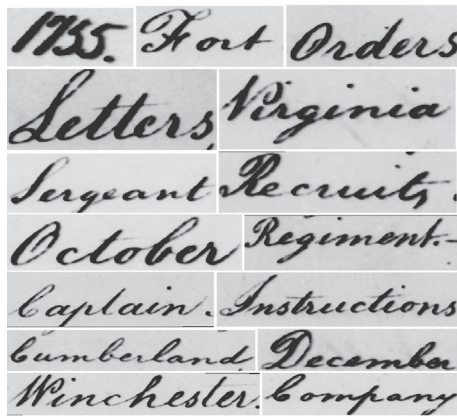 1755. Fort Orders
Letters, Virginia
Sergeant Recruits.
October Regiment.-
Captain. Instructions
Cumberland, December
Winchester. Company